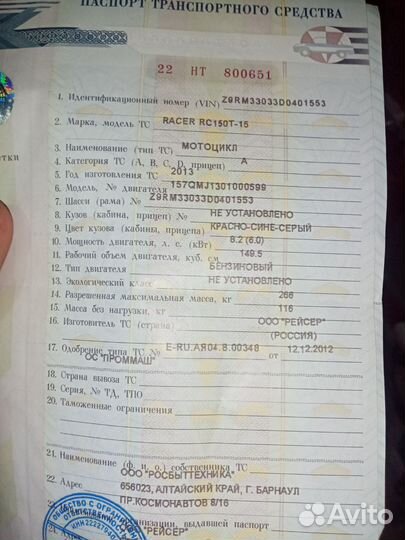 ПАСПОРТ ТРАНСПОРТНОГО СРЕДСТВА
22 НТ 800651
1. Идентификационный номер (VIN) Z9RM33033D0401553
2. Марка, модель ТС RACER RC150T-15
3. Наименование (тип ТС) МОТОЦИКЛ
4. Категория ТС (А, В, С, D, прицеп) А
5. Год изготовления ТС 2013
6. Модель, № двигателя 157QMJ1301000599
7. Шасси (рама) № Z9RM33033D0401553
8. Кузов (кабина, прицеп) № НЕ УСТАНОВЛЕНО
9. Цвет кузова (кабины, прицепа) КРАСНО-СИНЕ-СЕРЫЙ
10. Мощность двигателя, л. с. (кВт) 8.2 (6.0)
11. Рабочий объем двигателя, куб. см 149.5
12. Тип двигателя БЕНЗИНОВЫЙ
13. Экологический класс НЕ УСТАНОВЛЕНО
14. Разрешенная максимальная масса, кг 266
15. Масса без нагрузки, кг 116
16. Изготовитель ТС (страна) ООО "РЕЙСЕР"
(РОССИЯ)
17. Одобрение типа ТС № E-RU.АЯ04.В.00348 от 12.12.2012
ОС "ПРОММАШ"
18. Страна вывоза ТС
19. Серия, № ТД, ТПО
20. Таможенные ограничения
21. Наименование (ф. и. о.) собственника ТС
ООО "РОСБЫТТЕХНИКА"
22. Адрес 656023, АЛТАЙСКИЙ КРАЙ, Г. БАРНАУЛ
ПР.КОСМОНАВТОВ 8/16
организации, выдавшей паспорт
"РЕЙСЕР"
24. Адрес
Avito